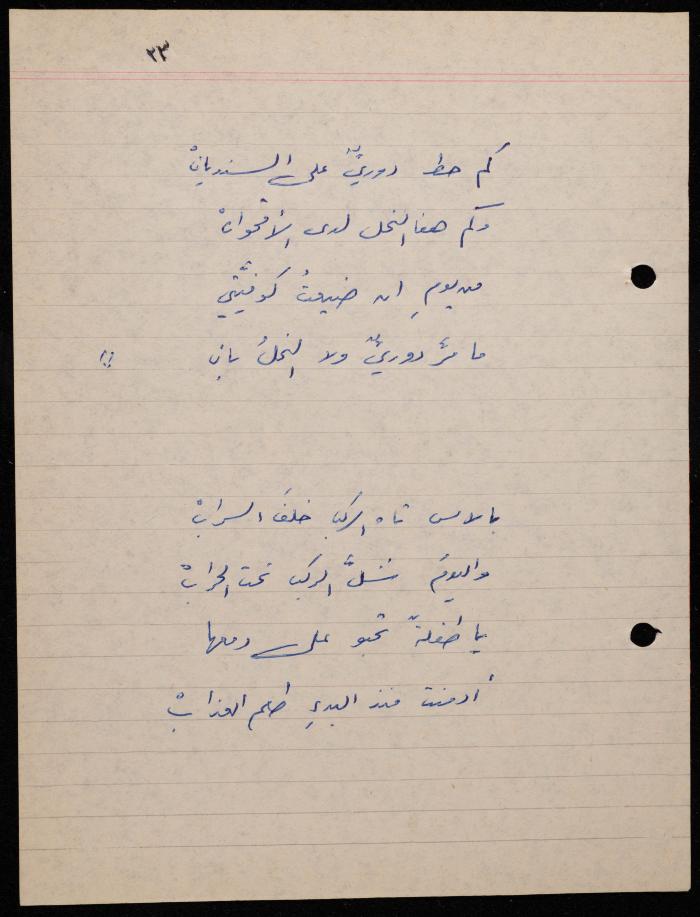 ٣٣
كم حط دوريٌّ على السنديانْ
وكم هفا النحل لدى الأقحوانْ
من يومِ ان ضيعتُ كوفيَّتي
ما مرَّ دوريٌّ ولا النحلُ بان !!
بالامس تاه الركب خلفَ السرابْ
واليومَ شُلَّ الركب تحت الحرابْ
يا طفلةً تحبو على دمعها
أدمنت منذ البدءِ طعم العذابْ